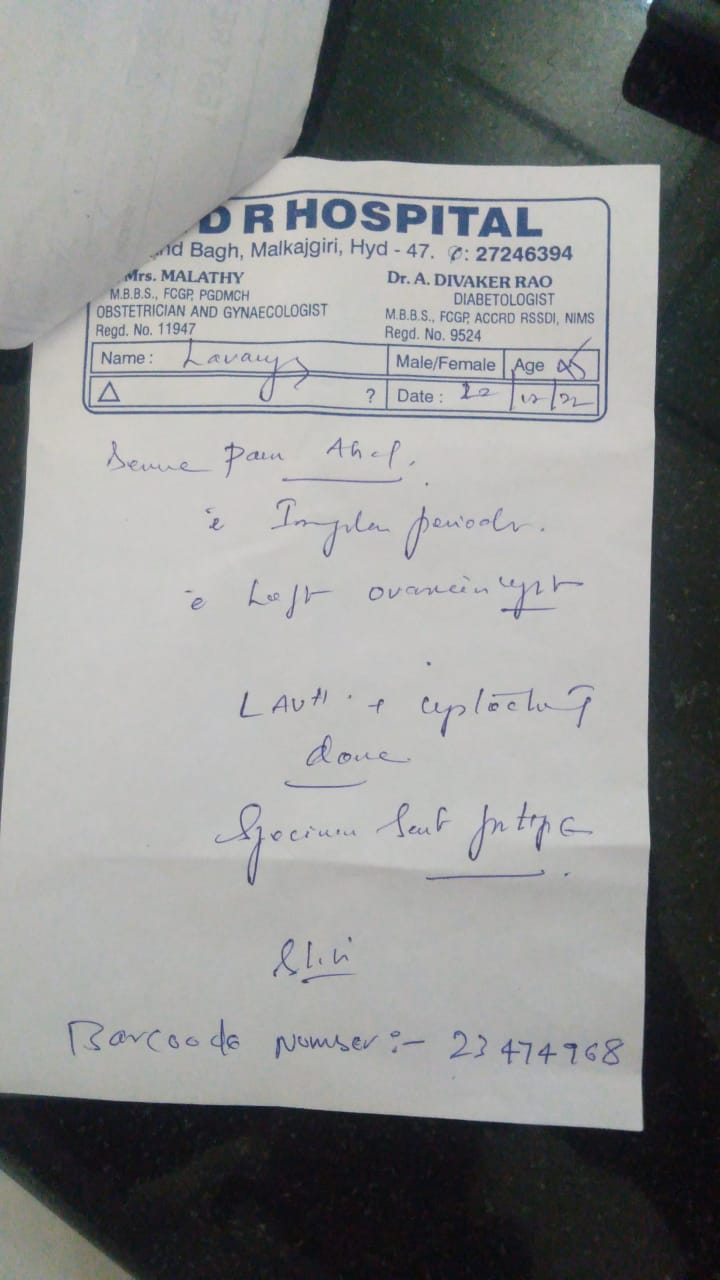 D R HOSPITAL
nd Bagh, Malkajgiri, Hyd - 47. ✆: 27246394
Mrs. MALATHY
M.B.B.S., FCGP, PGDMCH
OBSTETRICIAN AND GYNAECOLOGIST
Regd. No. 11947
Dr. A. DIVAKER RAO
DIABETOLOGIST
M.B.B.S., FCGP, ACCRD RSSDI, NIMS
Regd. No. 9524
Name : Lavanya
Male/Female Age
△ ?
Date : 22/12/22
Pain Abd.
periods.
Left ovarian cyst
LAVH +
done
Specimen Sent for HPE
Barcoode Number:- 23474968